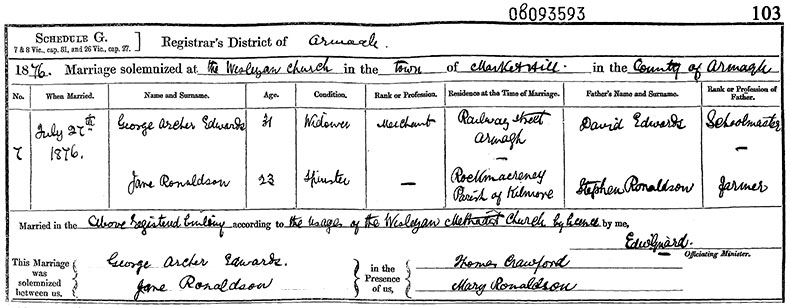 08093593
103
SCHEDULE G.
7 & 8 Vic., cap. 81, and 26 Vic., cap. 27.
Registrar's District of Armagh.
1876. Marriage solemnized at the Wesleyan Church in the Town of Market Hill. in the County of Armagh
No. When Married. Name and Surname. Age. Condition. Rank or Profession. Residence at the Time of Marriage. Father's Name and Surname. Rank or Profession of Father.
7 July 27th 1876. George Archer Edwards 31 Widower Merchant Railway Street Armagh David Edwards Schoolmaster
Jane Ronaldson 23 Spinster — Rockmacreney Parish of Kilmore Stephen Ronaldson farmer
Married in the Above Registered building according to the usages of the Wesleyan Methodist Church by licence by me,
Edw Guard.
Officiating Minister.
This Marriage was solemnized between us,
George Archer Edwards.
Jane Ronaldson
in the Presence of us,
Thomas Crawford
Mary Ronaldson